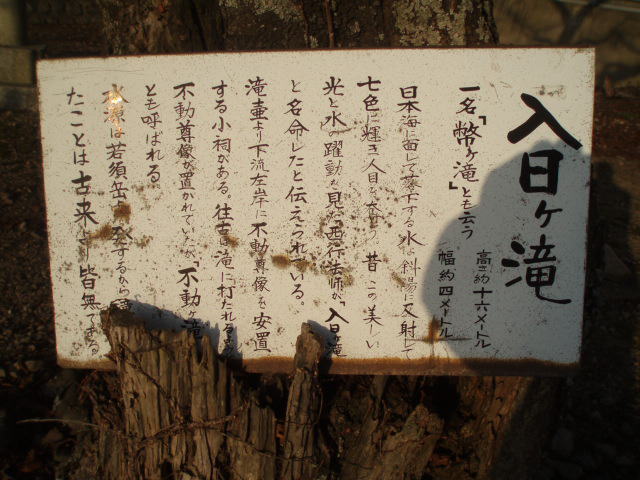 入日ヶ滝
一名「幣ヶ滝」とも云う
高さ約十六メートル
幅約四メートル
日本海に面して落下する水は斜陽に反射して
七色に輝き人目を奪う。昔この美しい
光と水の躍動を見た西行法師が、「入日ヶ滝
と名命したと伝えられている。
滝壷より下流左岸に不動尊像を安置
する小祠がある。往古は滝に打たれる
不動尊像が置かれていたが、「不動ヶ滝
とも呼ばれる
水源は若須岳に発するから
たことは古来より皆無である